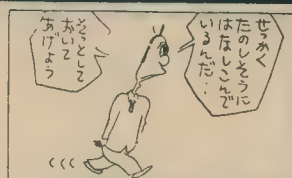 せっかく
たのしそうに
はなしこんで
いるんだ‥
そっとして
おいて
あげよう